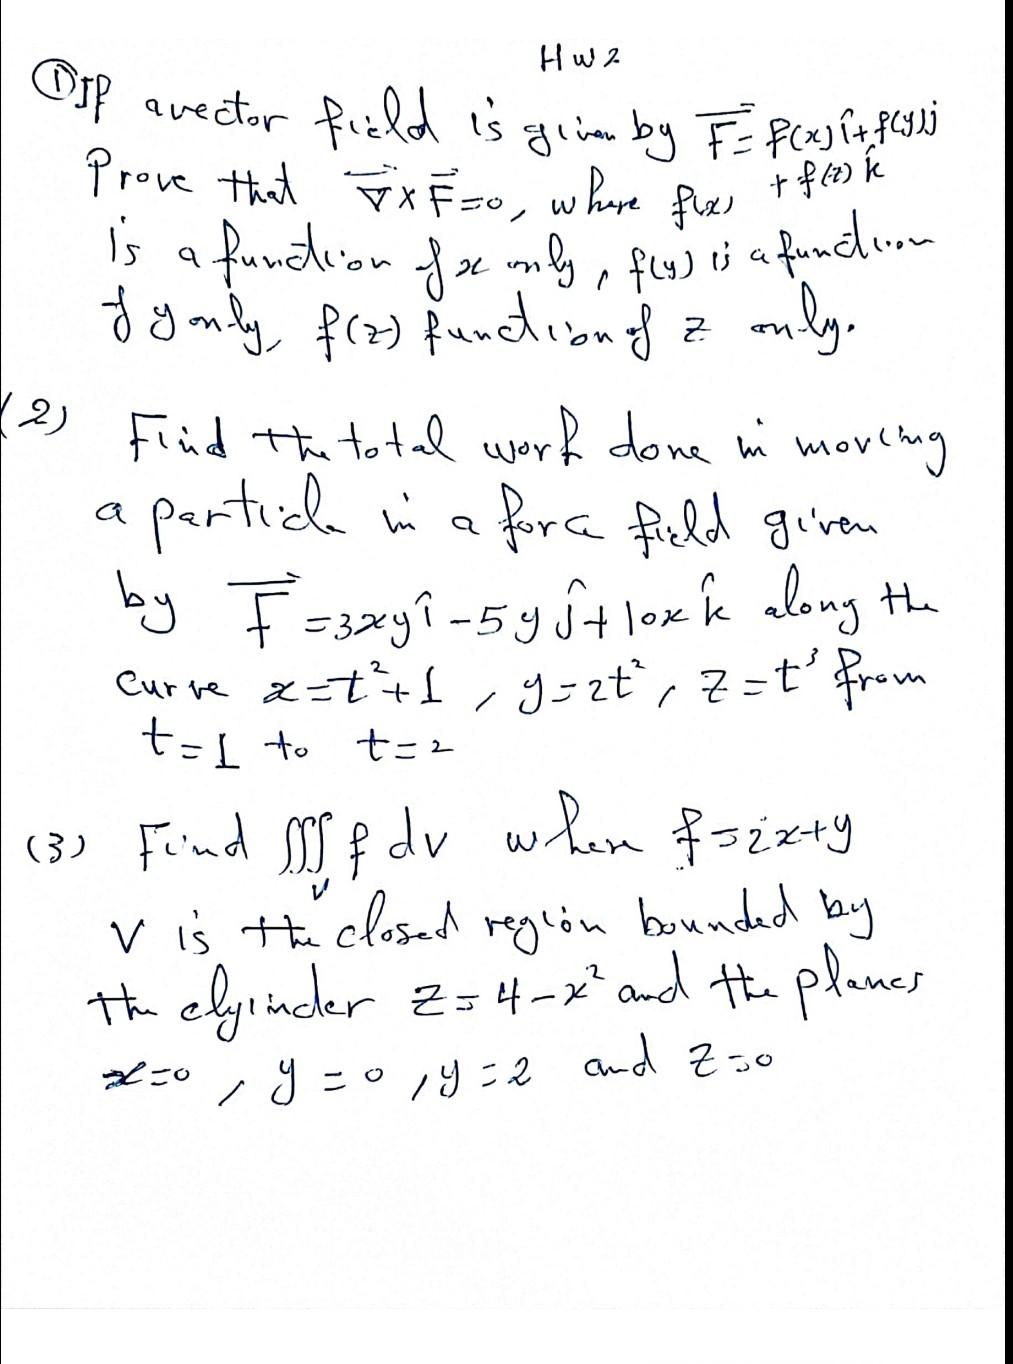 HW2
① If a vector field is given by F⃗ = f(x)î + f(y)ĵ
Prove that ∇⃗×F⃗=0, where f(x) + f(z) k̂
is a function of x only, f(y) is a function
of y only, f(z) function of z only.
(2) Find the total work done in moving
a particle in a force field given
by F⃗ = 3xyî - 5yĵ + 10x k̂ along the
curve x=t²+1, y=2t², z=t³ from
t=1 to t=2
(3) Find ∭_V f dv where f=2x+y
V is the closed region bounded by
the clyinder z=4-x² and the planes
x=0, y=0, y=2 and z=0